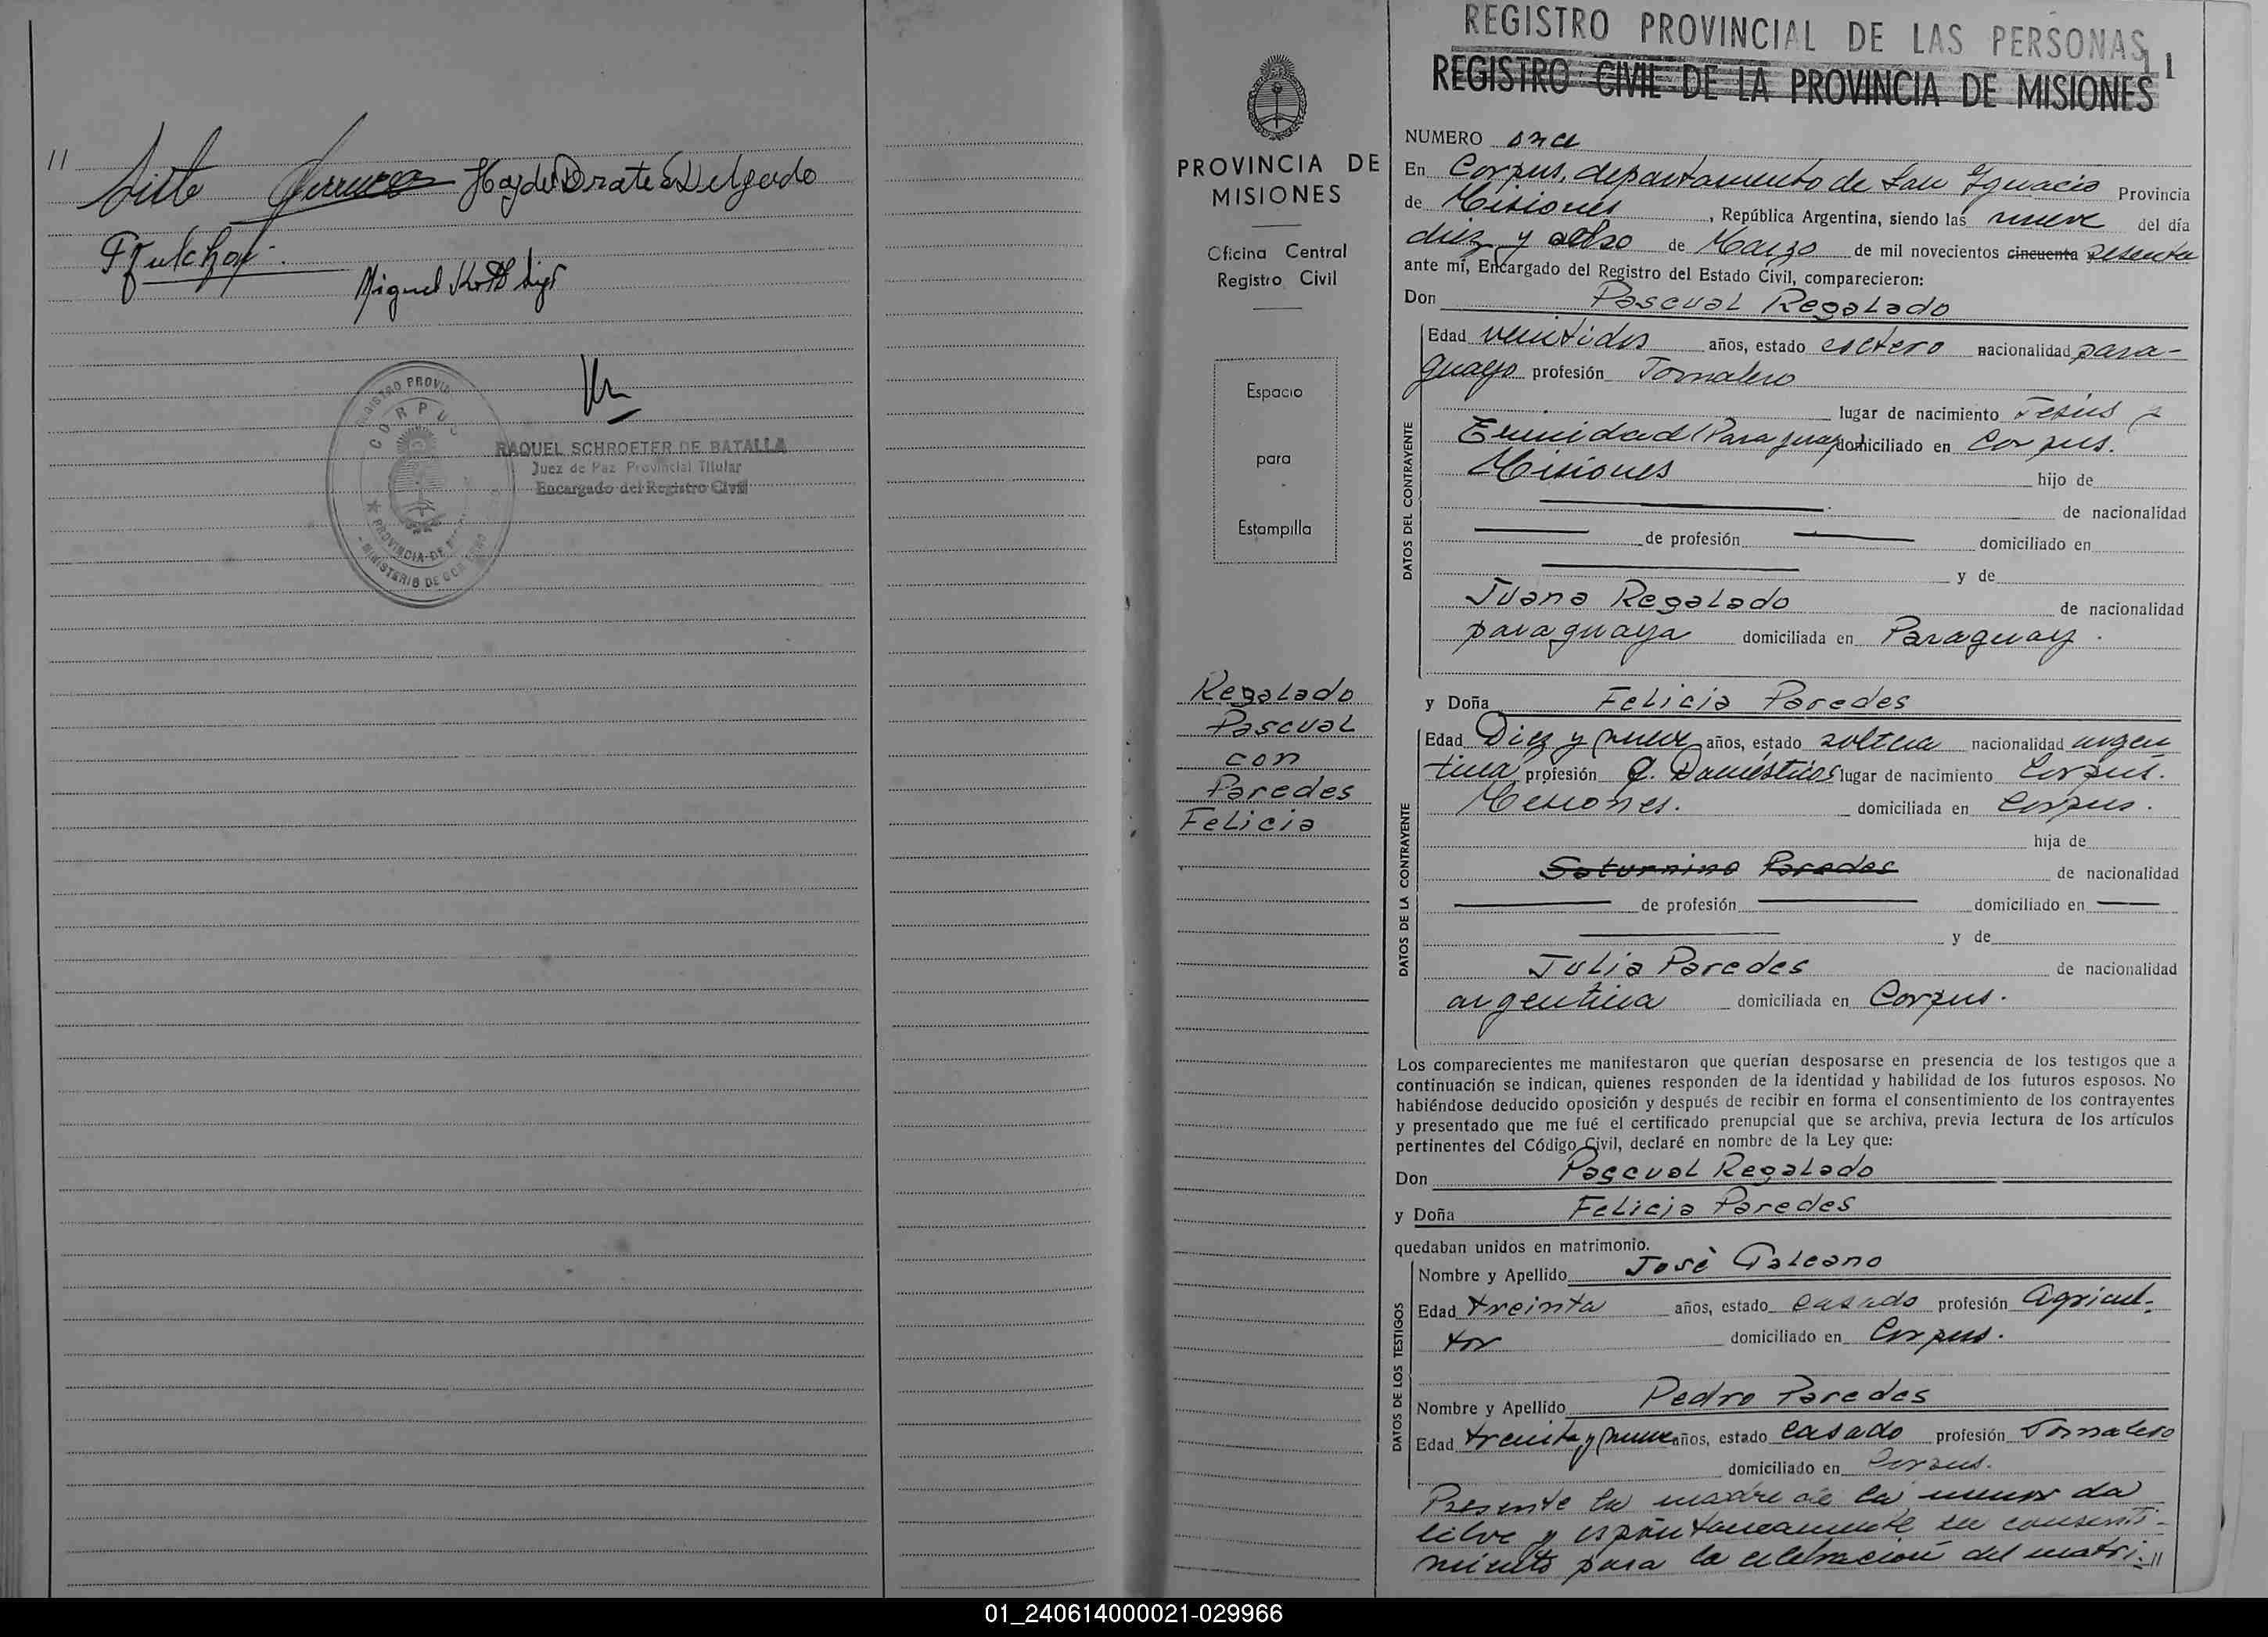 11
Sixto Haydeé Oñate Delgado
Miguel
REGISTRO PROVI
CORPU
PROVINCIA DE
MINISTERIO DE GO
RAQUEL SCHROETER DE BATALLA
Juez de Paz Provincial Titular
Encargado del Registro Civil
PROVINCIA DE
MISIONES
Oficina Central
Registro Civil
Espacio
para
Estampilla
Regalado
Pascual
con
Paredes
Felicia
REGISTRO PROVINCIAL DE LAS PERSONAS
11
REGISTRO CIVIL DE LA PROVINCIA DE MISIONES
NUMERO once
En Corpus, departamento de San Ignacio Provincia
de Misiones, República Argentina, siendo las nueve del día
diez y ocho de Marzo de mil novecientos cincuenta sesenta
ante mí, Encargado del Registro del Estado Civil, comparecieron:
Don Pascual Regalado
DATOS DEL CONTRAYENTE
Edad veintidos años, estado soltero nacionalidad para-
guayo profesión Jornalero
lugar de nacimiento Jesús y
Trinidad (Paraguay) domiciliado en Corpus.
Misiones hijo de
de nacionalidad
de profesión domiciliado en
y de
Juana Regalado de nacionalidad
paraguaya domiciliada en Paraguay.
y Doña Felicia Paredes
DATOS DE LA CONTRAYENTE
Edad Diez y nueve años, estado soltera nacionalidad argen
tina profesión Q. Domésticos lugar de nacimiento Corpus.
Misiones. domiciliada en Corpus.
hija de
Saturnino Paredes de nacionalidad
de profesión domiciliado en
y de
Julia Paredes de nacionalidad
argentina domiciliada en Corpus.
Los comparecientes me manifestaron que querían desposarse en presencia de los testigos que a
continuación se indican, quienes responden de la identidad y habilidad de los futuros esposos. No
habiéndose deducido oposición y después de recibir en forma el consentimiento de los contrayentes
y presentado que me fué el certificado prenupcial que se archiva, previa lectura de los artículos
pertinentes del Código Civil, declaré en nombre de la Ley que:
Don Pascual Regalado
y Doña Felicia Paredes
quedaban unidos en matrimonio.
DATOS DE LOS TESTIGOS
Nombre y Apellido José Galeano
Edad treinta años, estado casado profesión Agricul-
tor domiciliado en Corpus.
Nombre y Apellido Pedro Paredes
Edad treinta y nueve años, estado casado profesión Jornalero
domiciliado en Corpus.
Presente la madre de la menor da
libre y espóntaneamente su consenti-
miento para la celebración del matri-11
01_240614000021-029966